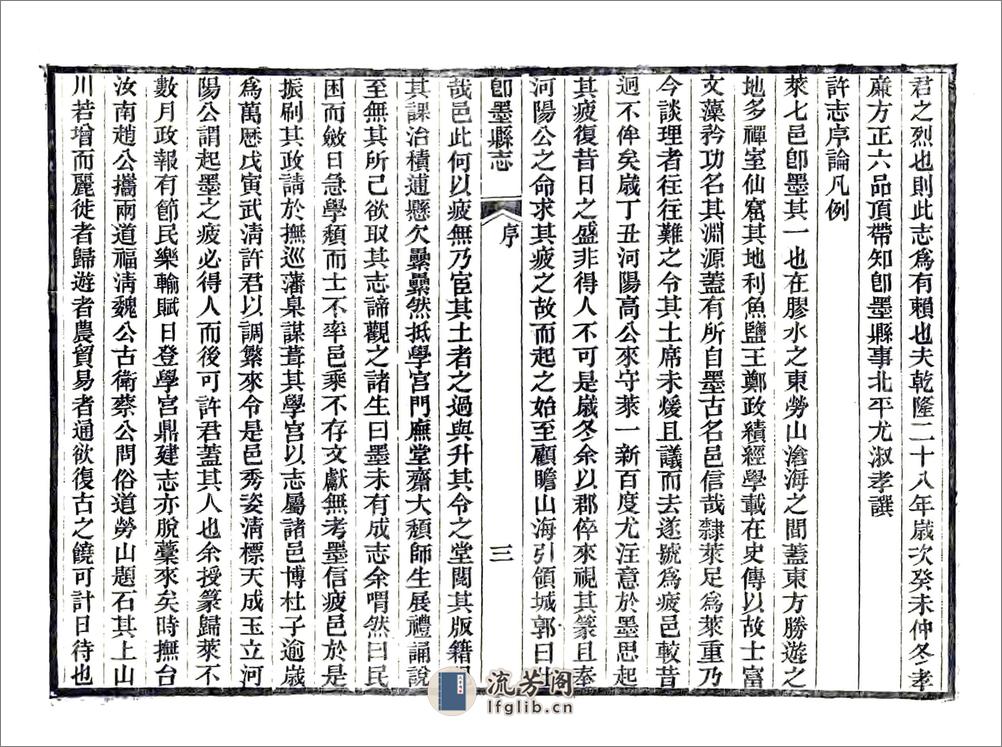 君之烈也則此志爲有賴也夫乾隆二十八年歲次癸未仲冬孝
廉方正六品頂帶知卽墨縣事北平尤淑孝譔
許志序論凡例
萊七邑卽墨其一也在膠水之東勞山滄海之間蓋東方勝遊之
地多禪室仙窟其地利魚鹽王鄭政績經學載在史傳以故士富
文藻矜功名其淵源蓋有所自墨古名邑信哉隸萊足爲萊重乃
今談理者往往難之令其土席未煖且議而去遂號爲疲邑較昔
迥不侔矣歲丁丑河陽高公來守萊一新百度尤注意於墨思起
其疲復昔日之盛非得人不可是歲冬余以郡倅來視其篆且奉
河陽公之命求其疲之故而起之始至顧瞻山海引領城郭曰壯
卽墨縣志
序
三
哉邑此何以疲無乃宦其土者之過與升其令之堂閱其版籍
其課治積逋懸欠纍纍然抵學宮門廡堂齋大頹師生展禮誦說
至無其所已欲取其志諦觀之諸生曰墨未有成志余喟然曰民
困而斂日急學頹而士不率邑乘不存文獻無考墨信疲邑於是
振刷其政請於撫巡藩臬謀葺其學宮以志屬諸邑博杜子逾歲
爲萬歷戊寅武清許君以調繁來令是邑秀姿清標天成玉立河
陽公謂起墨之疲必得人而後可許君蓋其人也余授篆歸萊不
數月政報有節民樂輸賦日登學宮鼎建志亦脫藁來矣時撫台
汝南趙公攜兩道福清魏公古衛蔡公問俗道勞山題石其上山
川若增而麗徙者歸遊者農貿易者通欲復古之饒可計日待也
流芳閣
lfglib.cn